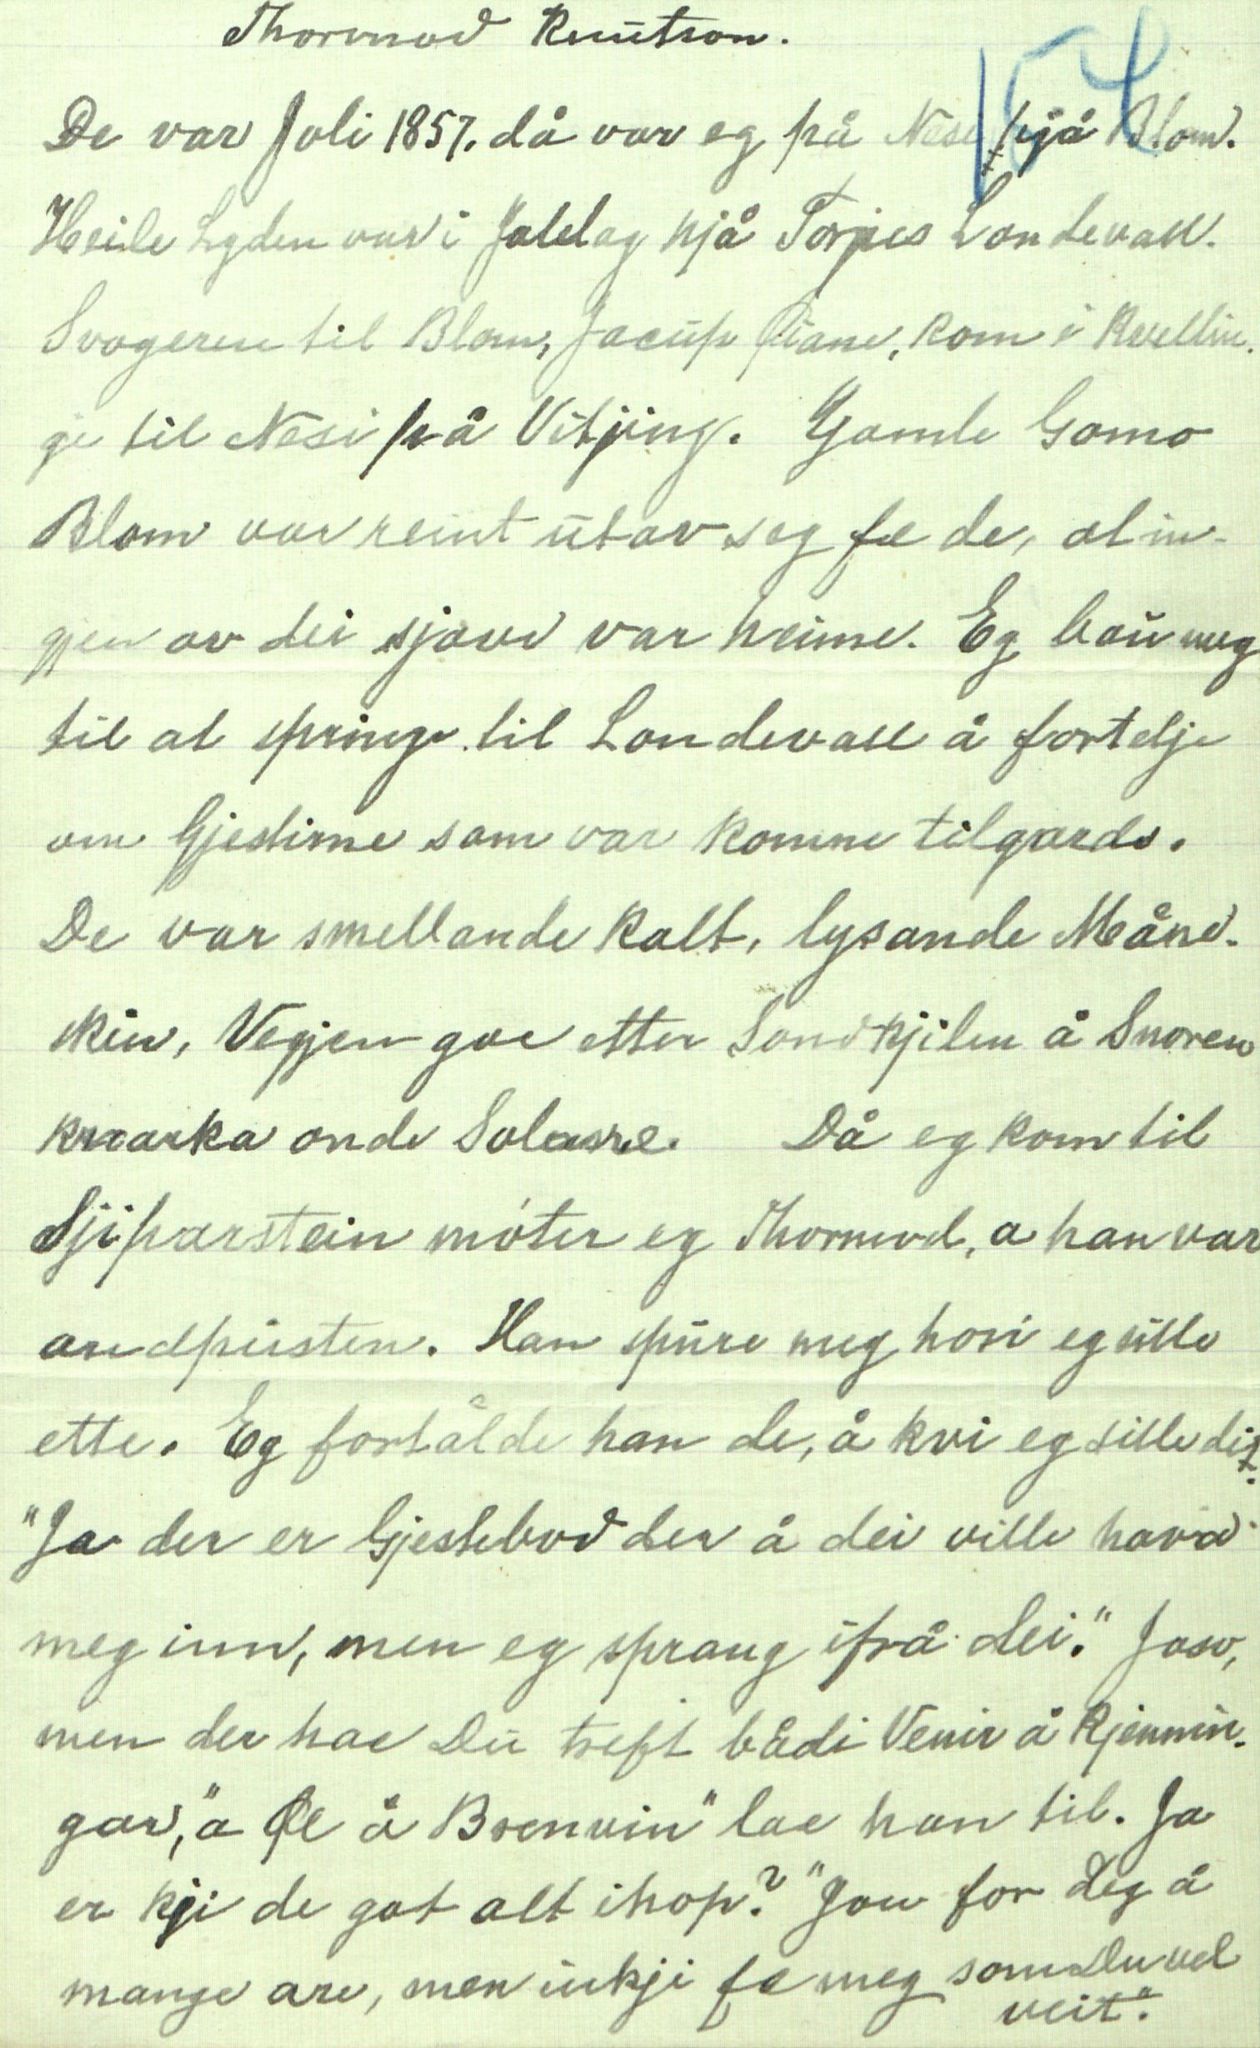 Thormod Knutson.
154
De var Joli 1857. då var eg på Nesi hjå Blom.
Heile Lyden var i Jolelag hjå Torjus Londevall.
Svogeren til Blom, Jacup Qvane, kom i Kvellin-
gje til Nesi på Vitjing. Gamle Gomo
Blom var reint utav seg fæ de, at in-
gjen av dei sjave var heime. Eg bau meg
til at springe til Londevall å fortelje
om Gjestirne som var komne tilgards.
De var smellande kalt, lysande Måne-
skin, Vegjen gae etter Sondkjilen å Snoren
knarka onde Solane. Då eg kom til
Sjiparstein møter eg Thormod, a han var
andpusten. Han spure meg hori eg sille
ette. Eg fortålde han de, å kvi eg sille dit.
"Ja der er Gjestebod der å dei ville hava
meg inn, men eg sprang ifrå dei." Jaso,
men der hae Du treft bådi Venir å Kjennin-
gar, "a Øl å Brenvin" lae han til. Ja
er kji de got alt ihop? "Jou for deg å
mange are, men inkji fæ meg som Du vel
veit."